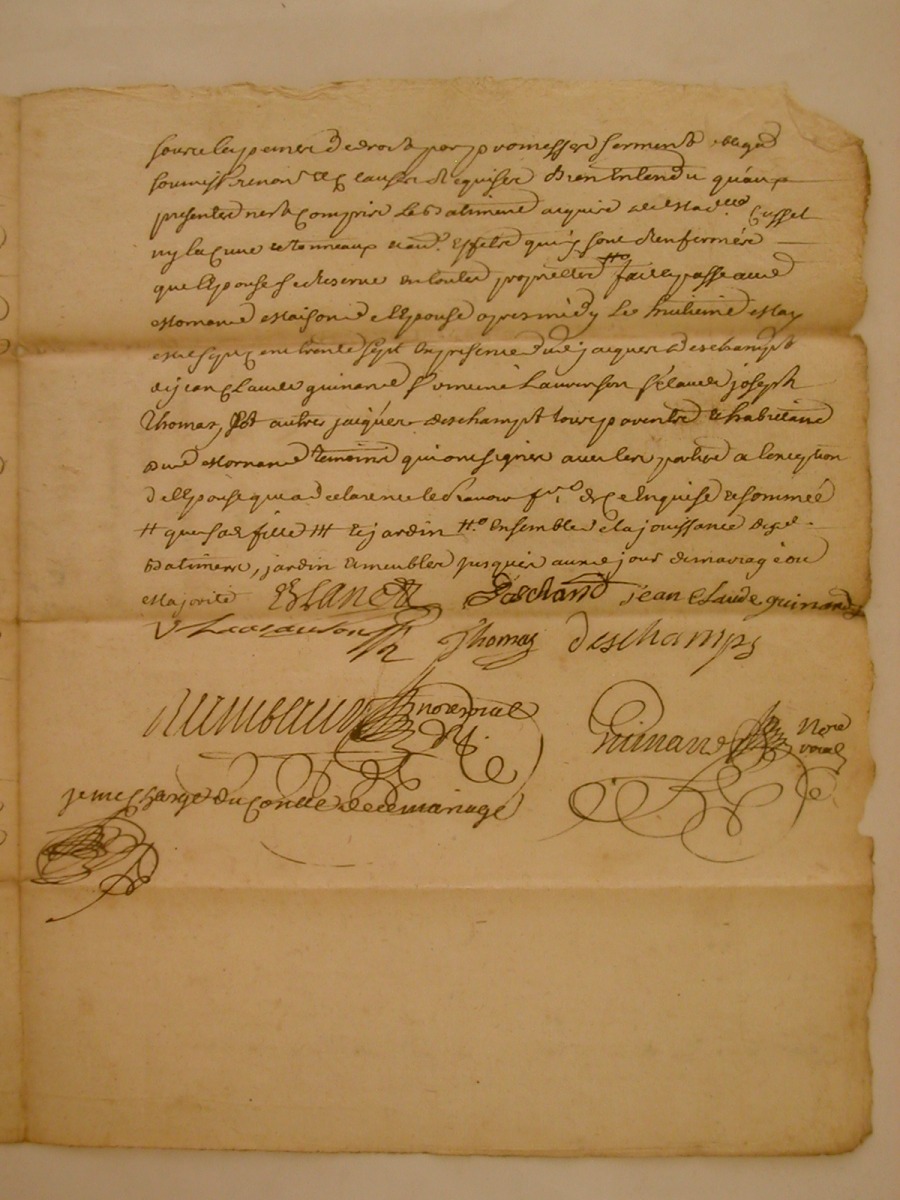 sous les peines de droit par promesses serment oblig.
soumiss. renon. et clauses requises bien entendu qu'aux
presentes n'est compris le batiment acquis de Mad.lle Cusset
ny la cuve et tonneaux effets qui y sont renfermés
que l'epouse se reserve en toutes proprietés fait et passé aud
Mornand maison de l'epouse apres midy le huitieme May
mil sept cent trente sept en presence de jacques deschampt
de jean Claude guinand laurenson claude joseph
Thomas, et autres jacques deschampt tous parents et habitant
aud Mornand temoins qui ont signés avec les parties a l'exception
de l'epouse qui a declaré ne le scavoir de ce enquise et sommée
que sad fille et jardin ensemble de la jouissance desd.
batiment, jardin et meubles jusques au jour de mariage ou
Majorité Blanc Deschand jean Claude guinand
Laurenson Thomas deschamps
nore royal Guinand nore
royal
je me charge du Conlle de ce mariage